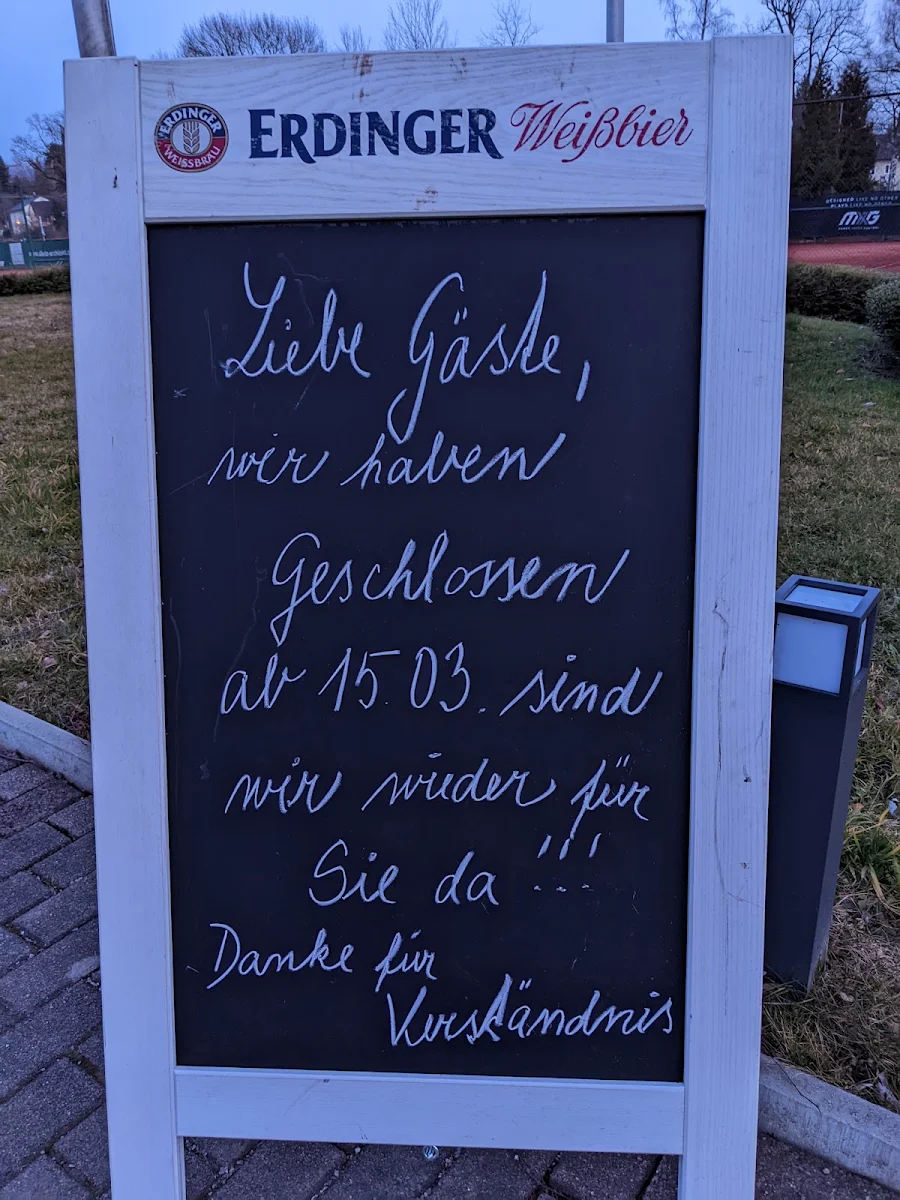 ERDINGER Weißbier
ERDINGER
WEISSBRÄU
DESIGNED LIKE NO OTHER
PLAYS LIKE NO OTHER
MXG
Liebe Gäste,
wir haben
Geschlossen
ab 15.03. sind
wir wieder für
Sie da !!!
Danke für
Verständnis